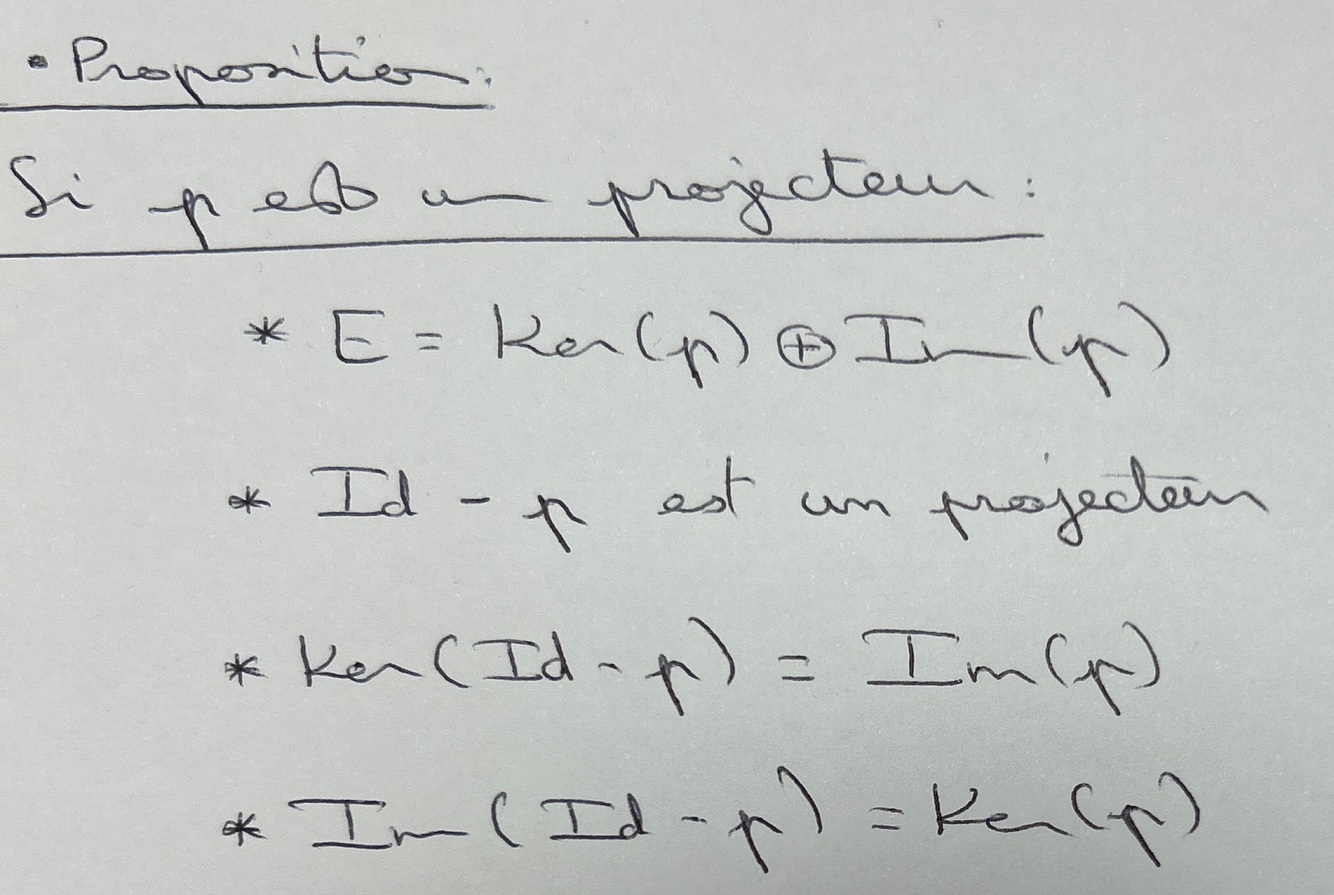 • Proposition:
Si p est un projecteur :
* E = Ker(p) ⊕ Im(p)
* Id - p est un projecteur
* Ker(Id - p) = Im(p)
* Im(Id - p) = Ker(p)